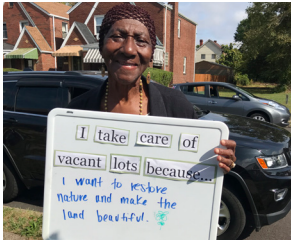 I take care of
vacant lots because...
I want to restore
nature and make the
land beautiful.